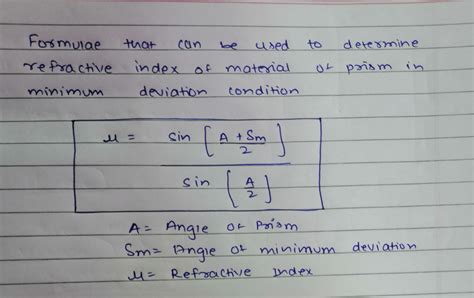 Formulae that can be used to determine
refractive index of material of prism in
minimum deviation condition
μ = sin [ A + Sm / 2 ]
sin [ A / 2 ]
A = Angle of Prism
Sm = Angle of minimum deviation
μ = Refractive Index